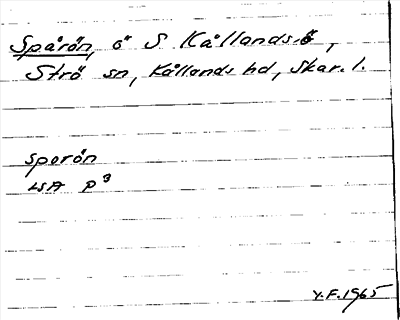 Spårön, ö S Kållandsö,
Strö sn, Kållands hd, Skar. l.
sporön
LSA P3
Y.F. 1965